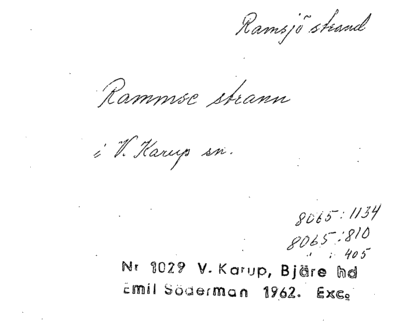 Ramsjö strand
Rammse strann
i V. Karup sn.
8065:1134
8065:810
" : 405
Nr 1029 V. Karup, Bjäre hd
Emil Söderman 1962. Exc.